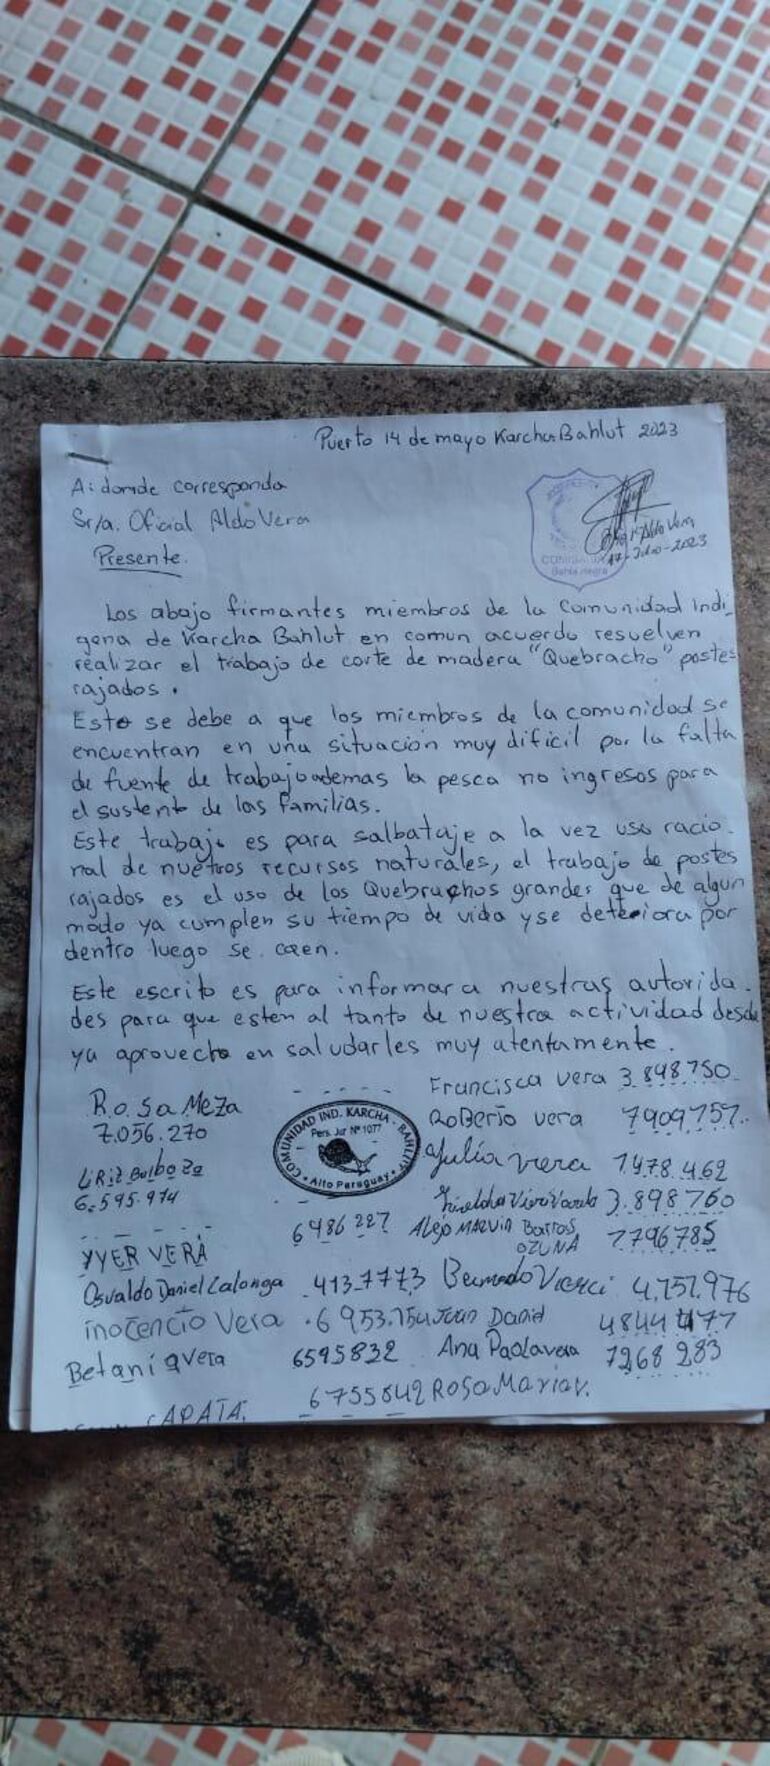 Puerto 14 de mayo Karcha Bahlut 2023
A: donde corresponda
Sr/a. Oficial Aldo Vera
Presente.
Aldo Vera
17-Julio-2023
Bahía Negra
Los abajo firmantes miembros de la Comunidad Indi_
gena de Karcha Bahlut en comun acuerdo resuelven
realizar el trabajo de corte de madera "Quebracho" postes
rajados.
Esto se debe a que los miembros de la comunidad se
encuentran en una situación muy dificil por la falta
de fuente de trabajo ademas la pesca no ingresos para
el sustento de las familias.
Este trabajo es para salbataje a la vez uso racio_
nal de nuetros recursos naturales, el trabajo de postes
rajados es el uso de los Quebrachos grandes que de algun
modo ya cumplen su tiempo de vida y se deteriora por
dentro luego se caen.
Este escrito es para informar a nuestras autorida_
des para que esten al tanto de nuestra actividad desde
ya aprovecho en saludarles muy atentamente.
Francisca Vera 3.898.750
Rosa Meza
7.056.270
COMUNIDAD IND. KARCHA-BAHLUT
Pers. Jur Nº 1077
• Alto Paraguay •
RoBerto vera 7909757
Julia vera 7478.462
6.595.974
3.898760
YYER VERA
6486227 Alejo MARvin Barros
OZUNA 7796785
Osvaldo Daniel Calonga 413.7773 4.757.976
inocencio Vera 6953.754 Juan Daniel
Betania vera 6595832 Ana Paola vera 7268 283
6755842 Rosa Maria v.